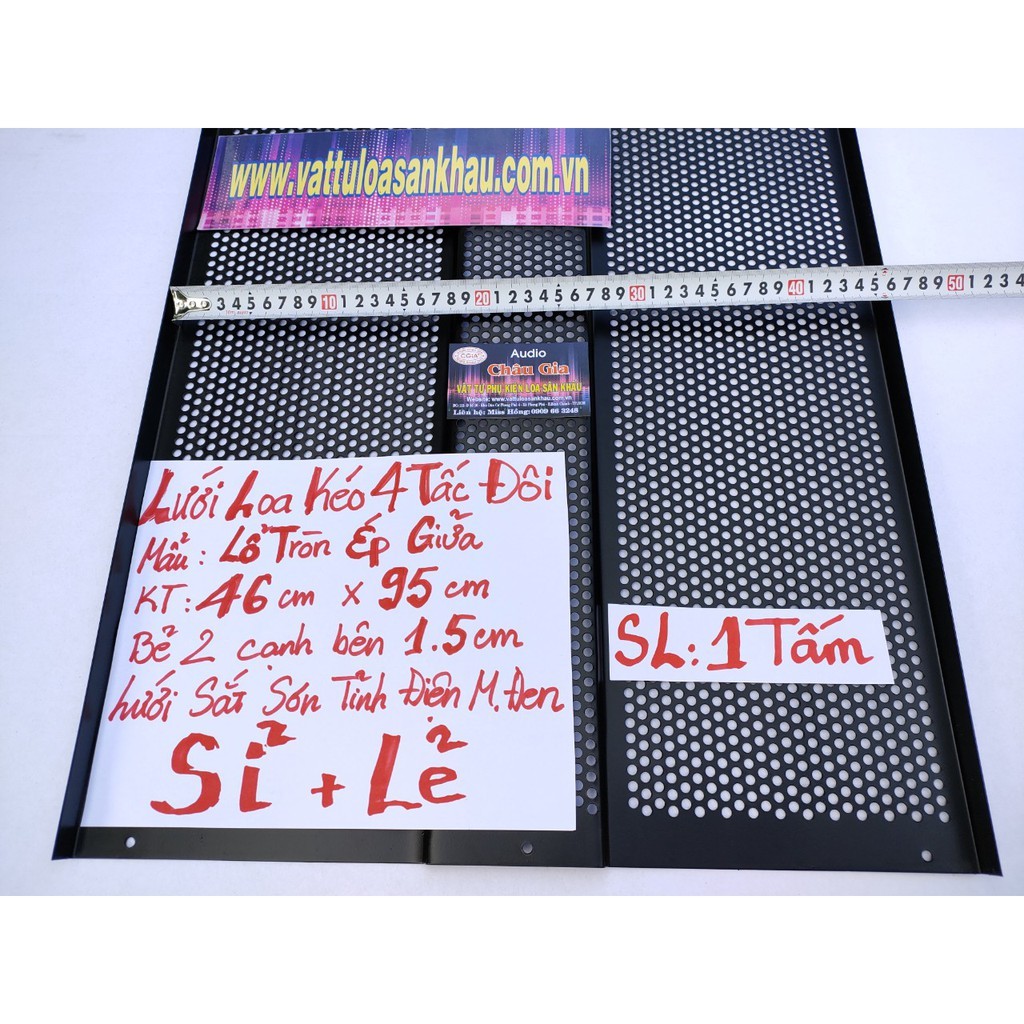 www.vattuloasankhau.com.vn
3 4 5 6 7 8 9 10 1 2 3 4 5 6 7 8 9 20 1 2 3 4 5 6 7 8 9 30 1 2 3 4 5 6 7 8 9 40 1 2 3 4 5 6 7 8 9 50 1 2 3 4
CGIA
Audio
Châu Gia
VẬT TƯ PHỤ KIỆN LOA SÂN KHẤU
Website: www.vattuloasankhau.com.vn
Liên hệ: Miss Hồng: 0909 66 3248
Lưới Loa Kéo 4 Tấc Đôi
Mẫu: Lỗ Tròn Ép Giữa
KT: 46 cm x 95 cm
Bẻ 2 cạnh bên 1.5 cm
Lưới Sắt Sơn Tĩnh Điện M. Đen
Sỉ + Lẻ
SL: 1 Tấm